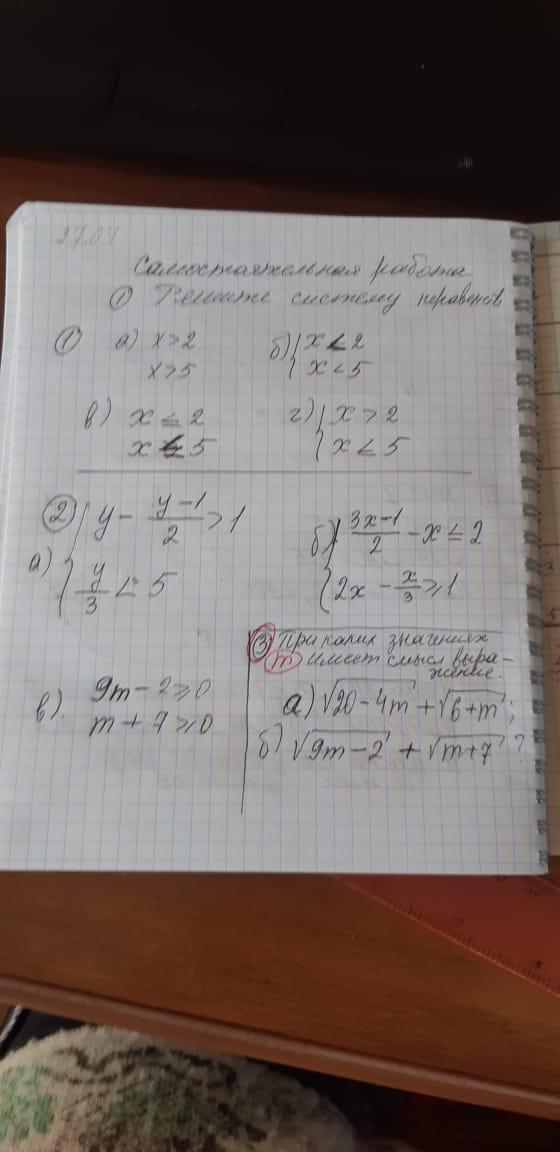 27.04
Самостоятельная работа
① Решите систему неравенств
① а) x>2
x>5
б) { x<2
x<5
в) x ≤ 2
x ≤ 5
г) { x > 2
x < 5
② а) { y - (y-1)/2 > 1
y/3 < 5
б) { (3x-1)/2 - x ≤ 2
2x - x/3 ≥ 1
в). 9m - 2 ≥ 0
m + 7 ≥ 0
③ При каких значениях
m имеет смысл выра-
жение.
а) √(20-4m) + √(6+m);
б) √(9m-2) + √(m+7) ?